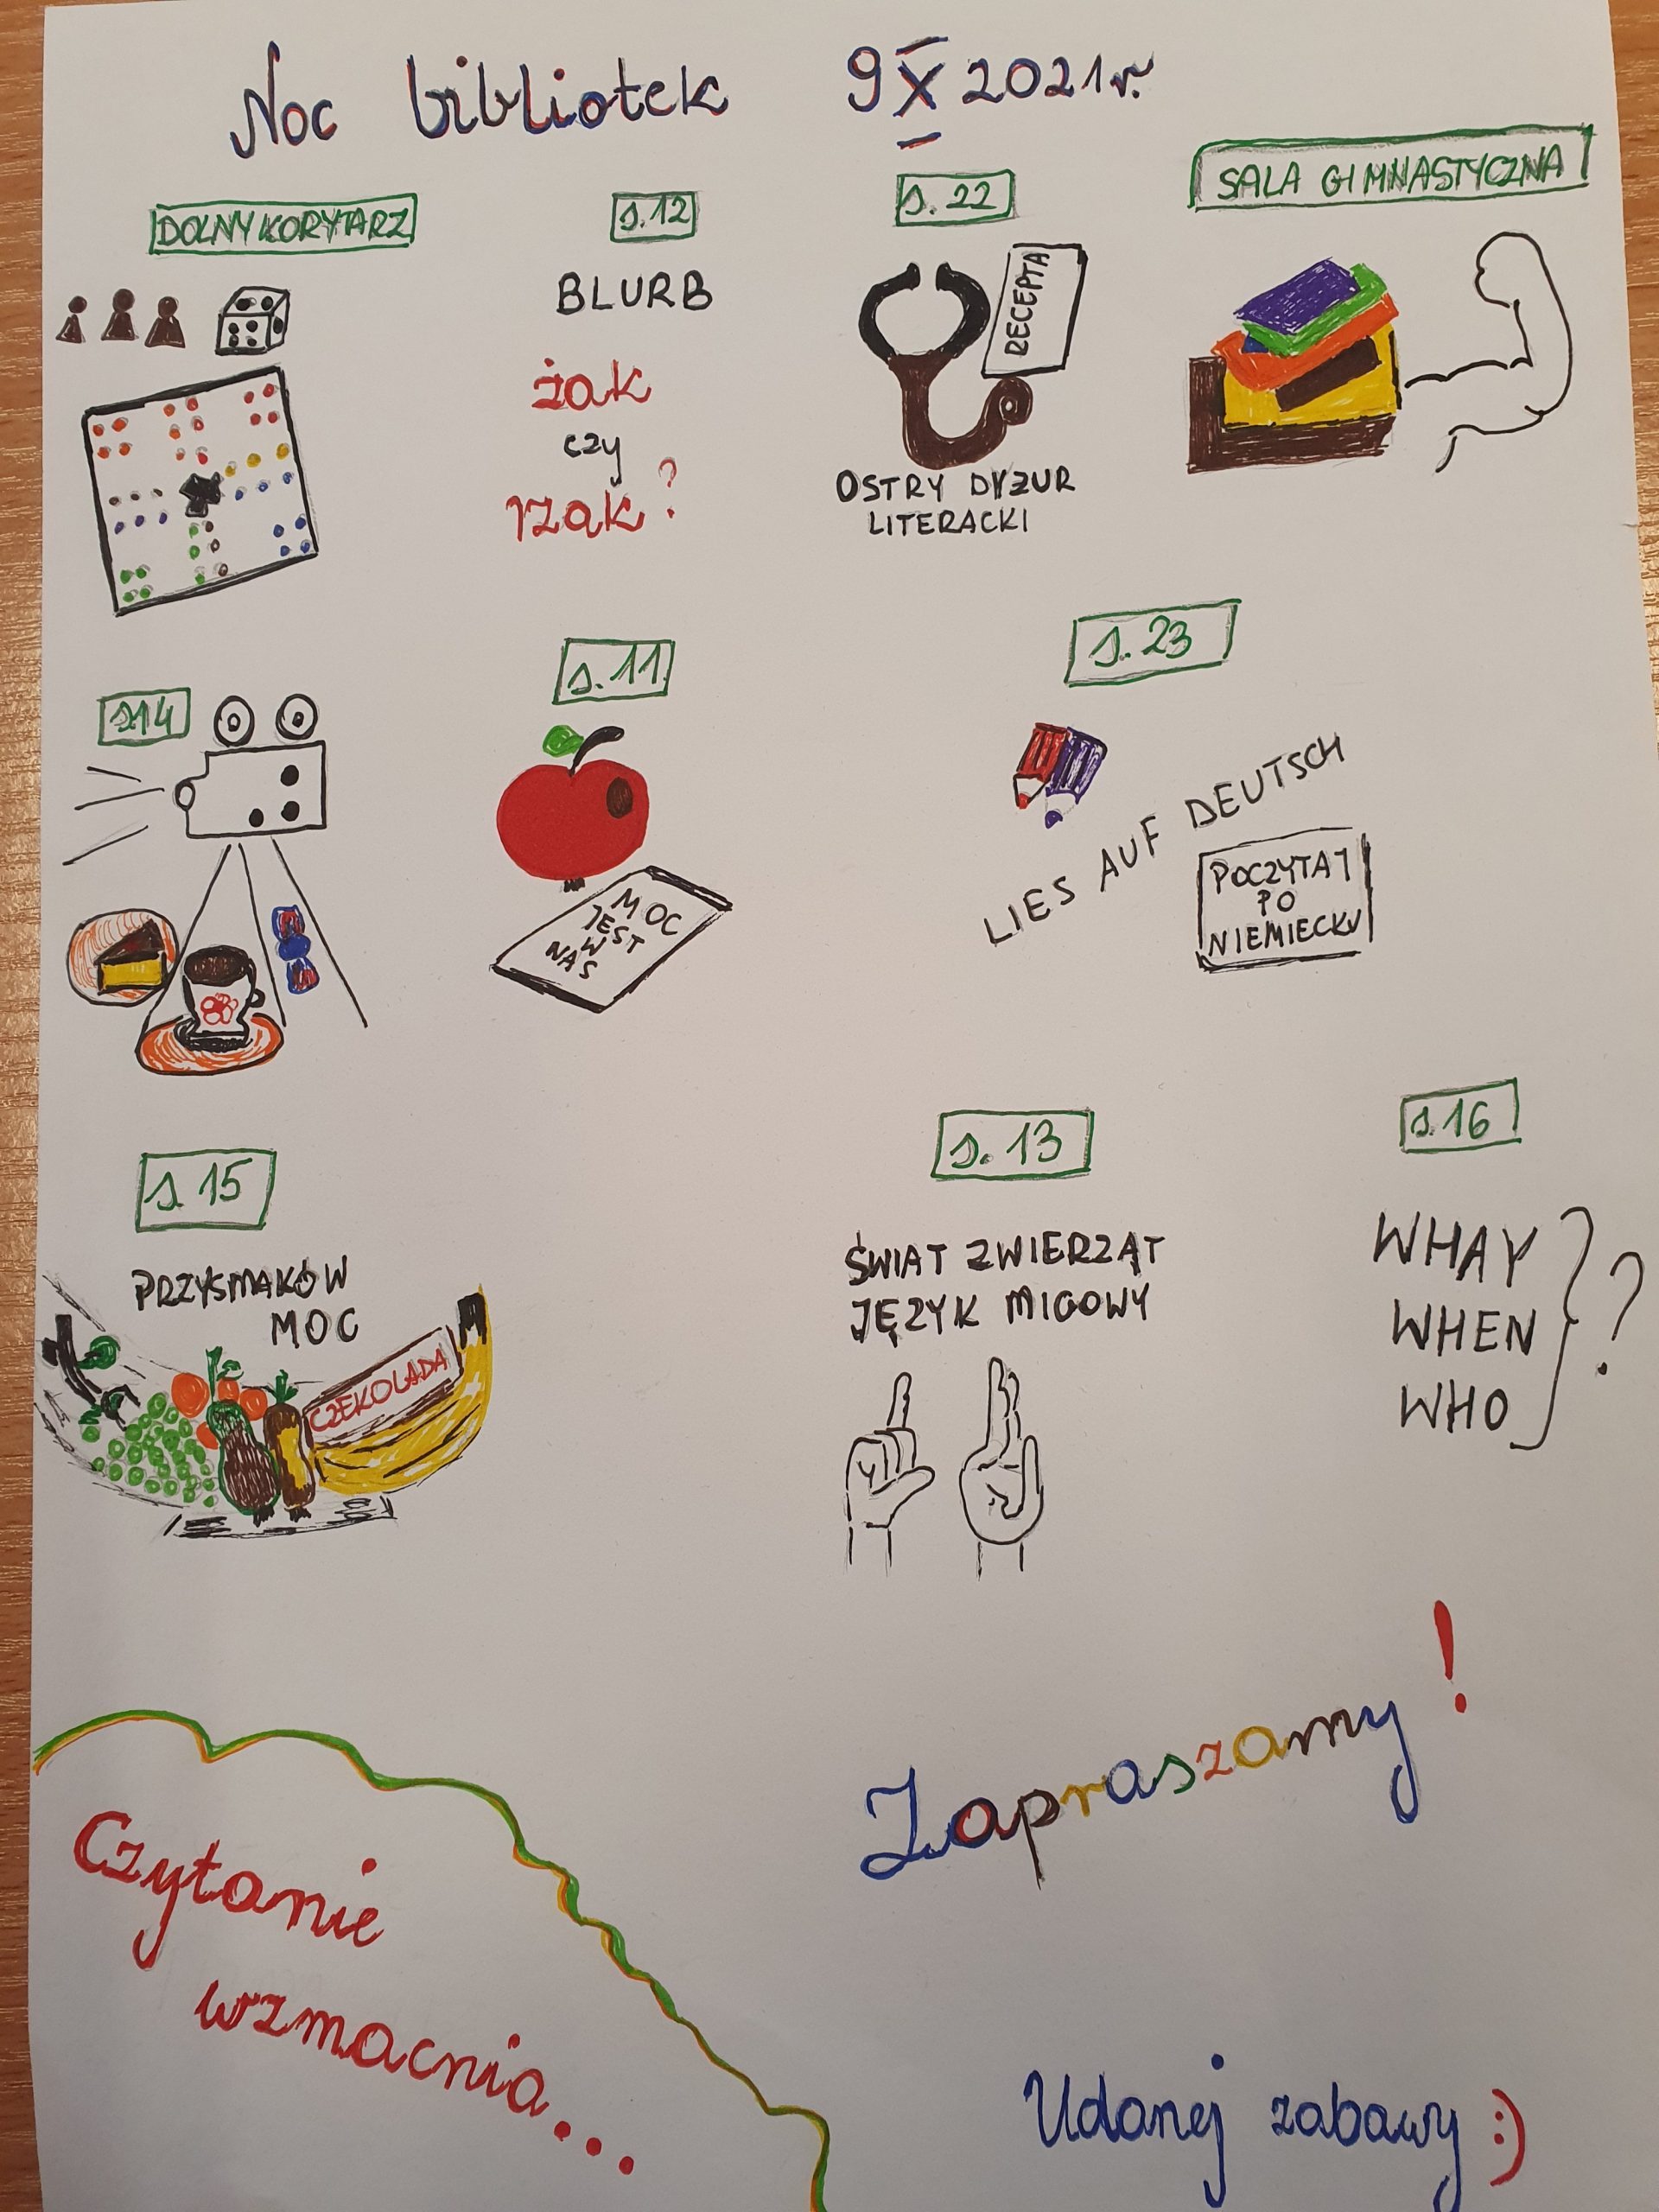 Noc bibliotek 9 X 2021 r.
DOLNY KORYTARZ
s. 12
BLURB
żak
czy
rzak?
s. 22
RECEPTA
OSTRY DYZUR
LITERACKI
SALA GIMNASTYCZNA
s14
s. 11
MOC
JEST
W
NAS
s. 23
LIES AUF DEUTSCH
POCZYTAJ
PO
NIEMIECKU
s. 15
PRZYSMAKÓW
MOC
CZEKOLADA
s. 13
ŚWIAT ZWIERZĄT
JĘZYK MIGOWY
s. 16
WHAY
WHEN
WHO
?
Zapraszamy!
Czytanie
wzmacnia...
Udanej zabawy :)